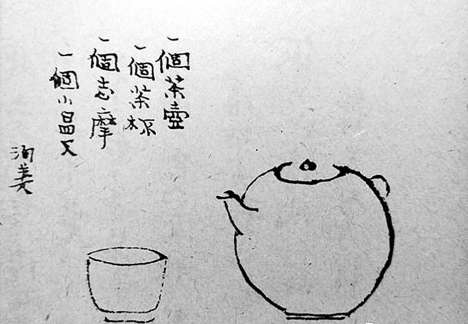 一個茶壺
一個茶杯
一個志摩
一個小曼
洵美